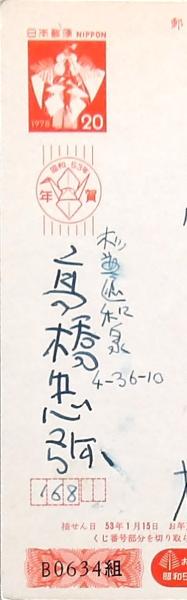 日本郵便
NIPPON
1978
20
郵
昭和 53年
年 賀
杉並区和泉
4-36-10
高橋忠弥
168
抽せん日 53年1月15日 お年
くじ番号部分を切り取ら
B0634組
お
昭和5